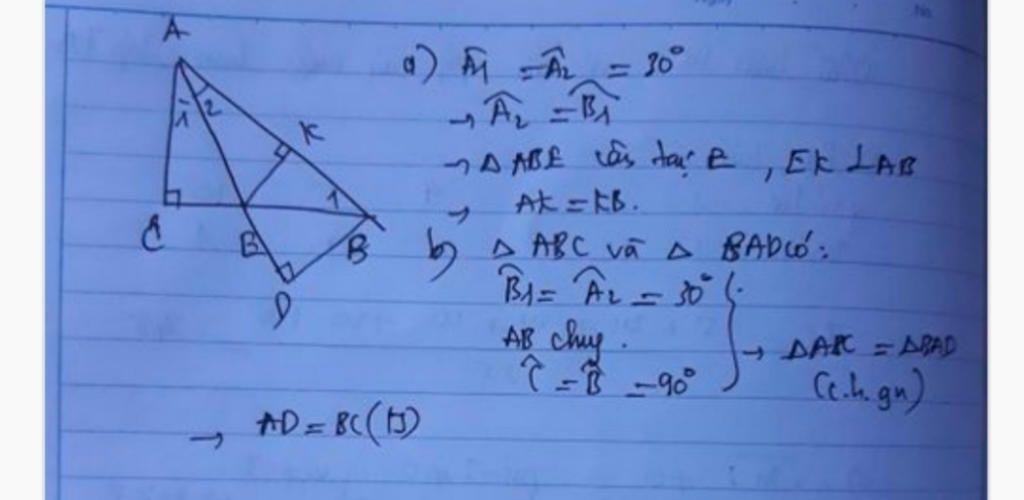 A
1 2
K
1
C E B
D
a) Â1 = Â2 = 30°
→ Â2 = B̂1
→ △ ABE cân tại E , EK ⊥ AB
→ AK = KB.
b) △ ABC và △ BAD có:
B̂1 = Â2 = 30°
AB chung .
Ĉ = B̂ = 90°
→ △ABC = △BAD
(c.h.gn)
→ AD = BC